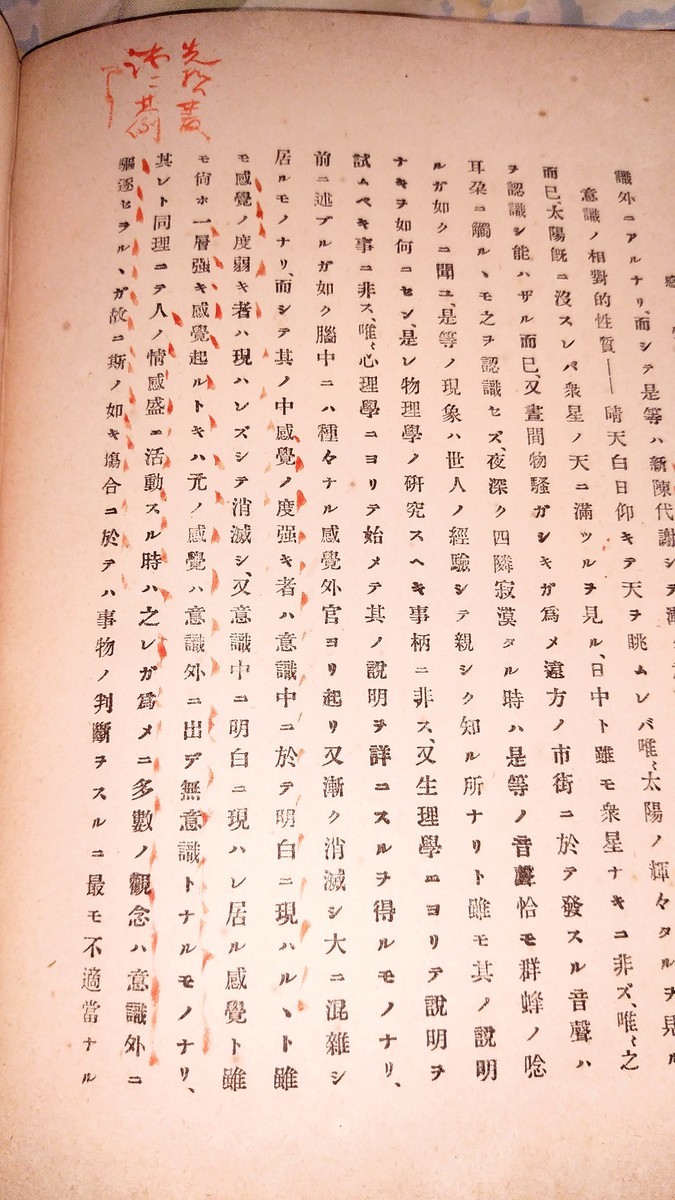 識外ニアルナリ、而シテ是等ハ新陳代謝シテ
意識ノ相對的性質――晴天白日仰キテ天ヲ眺ムレバ唯〻太陽ノ輝々タルヲ見ル
而已、太陽既ニ沒スレバ衆星ノ天ニ滿ツルヲ見ル、日中ト雖モ衆星ナキニ非ズ、唯〻之
ヲ認識シ能ハザル而已、又晝間物騷ガシキガ爲メ遠方ノ市街ニ於テ發スル音聲ハ
耳朶ニ觸ルヽモ之ヲ認識セズ、夜深ク四隣寂漠タル時ハ是等ノ音聲恰モ群蜂ノ唸
ルガ如クニ聞ユ、是等ノ現象ハ世人ノ經驗シテ親シク知ル所ナリト雖モ其ノ說明
ナキヲ如何ニセン、是レ物理學ノ硏究スヘキ事柄ニ非ス、又生理學ニヨリテ說明ヲ
試ムベキ事ニ非ス、唯〻心理學ニヨリテ始メテ其ノ說明ヲ詳ニスルヲ得ルモノナリ、
前ニ述ブルガ如ク腦中ニハ種々ナル感覺外官ヨリ起リ又漸ク消滅シ大ニ混雜シ
居ルモノナリ、而シテ其ノ中感覺ノ度强キ者ハ意識中ニ於テ明白ニ現ハルヽト雖
モ感覺ノ度弱キ者ハ現ハレズシテ消滅シ、又意識中ニ明白ニ現ハレ居ル感覺ト雖
モ尙ホ一層强キ感覺起ルトキハ元ノ感覺ハ意識外ニ出デ無意識トナルモノナリ、
其レト同理ニテ人ノ情感盛ニ活動スル時ハ之レガ爲メニ多數ノ觀念ハ意識外ニ
驅逐セラルヽガ故ニ斯ノ如キ塲合ニ於テハ事物ノ判斷ヲスルニ最モ不適當ナル